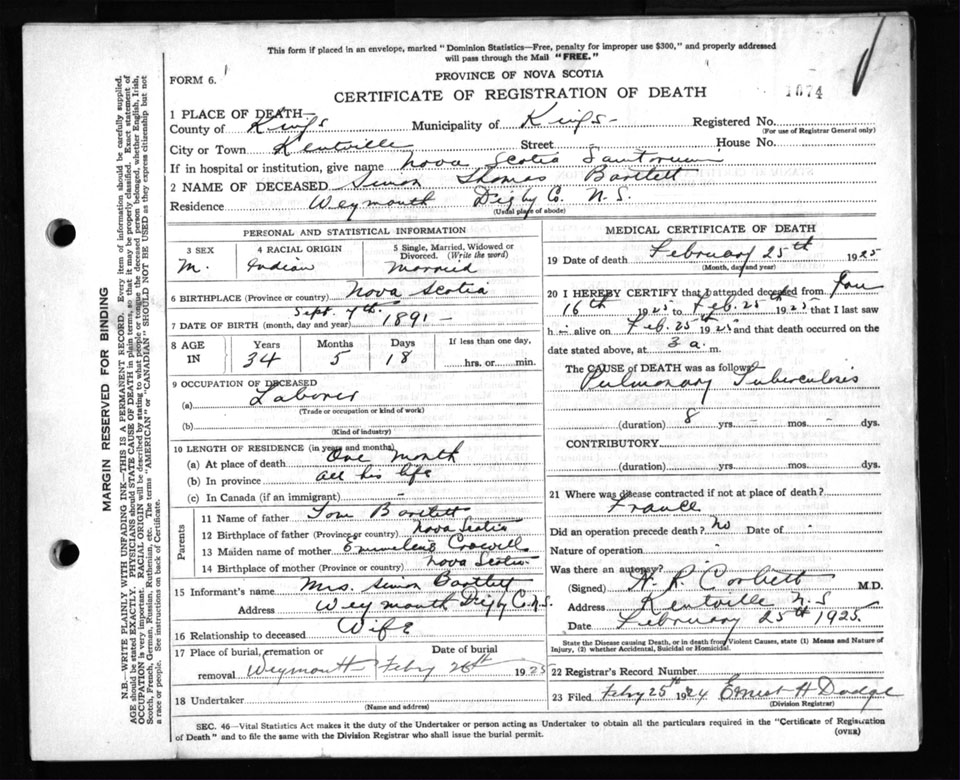 This form if placed in an envelope, marked "Dominion Statistics—Free, penalty for improper use $300," and properly addressed
will pass through the Mail "FREE."
FORM 6.
PROVINCE OF NOVA SCOTIA
CERTIFICATE OF REGISTRATION OF DEATH
1074
1 PLACE OF DEATH—
County of Kings Municipality of Kings - Registered No.
(For use of Registrar General only)
City or Town Kentville Street House No.
If in hospital or institution, give name Nova Scotia
2 NAME OF DECEASED Simon Thomas Bartlett
Residence Weymouth Digby Co. N.S.
(Usual place of abode)
PERSONAL AND STATISTICAL INFORMATION
3 SEX 4 RACIAL ORIGIN 5 Single, Married, Widowed or
Divorced. (Write the word)
M. Indian Married
6 BIRTHPLACE (Province or country) Nova Scotia
7 DATE OF BIRTH (month, day and year) Sept. 7th 1891 -
8 AGE Years Months Days If less than one day,
IN 34 5 18 hrs. or min.
9 OCCUPATION OF DECEASED
(a) Laborer
(Trade or occupation or kind of work)
(b)
(Kind of industry)
10 LENGTH OF RESIDENCE (in years and months)
(a) At place of death One month
(b) In province all his life
(c) In Canada (if an immigrant) -
Parents
11 Name of father Tom Bartlett
12 Birthplace of father (Province or country) Nova Scotia
13 Maiden name of mother Crowell
14 Birthplace of mother (Province or country) Nova Scotia
15 Informant's name Mrs. Simon Bartlett
Address Weymouth Digby Co. N.S.
16 Relationship to deceased Wife
17 Place of burial, cremation or Date of burial
removal Weymouth Febry 26th 1925
18 Undertaker
(Name and address)
MEDICAL CERTIFICATE OF DEATH
19 Date of death February 25th 1925
(Month, day and year)
20 I HEREBY CERTIFY that I attended deceased from Jan
16th 1925 to Feb. 25th 1925 that I last saw
h alive on Feb. 25th 1925 and that death occurred on the
date stated above, at 3 a. m.
The CAUSE of DEATH was as follows:
Pulmonary Tuberculosis
(duration) 8 yrs. - mos. - dys.
CONTRIBUTORY
(duration) yrs. mos. dys.
21 Where was disease contracted if not at place of death?
France
Did an operation precede death? No Date of -
Nature of operation -
Was there an autopsy?
(Signed) H. R. Corbett M.D.
Address Kentville N.S
Date February 25th 1925.
State the Disease causing Death, or in death from Violent Causes, state (1) Means and Nature of
Injury, (2) whether Accidental, Suicidal or Homicidal.
22 Registrar's Record Number
23 Filed Febry 25th 1924 Ernest H Dodge
(Division Registrar)
SEC. 46—Vital Statistics Act makes it the duty of the Undertaker or person acting as Undertaker to obtain all the particulars required in the "Certificate of Registration
of Death" and to file the same with the Division Registrar who shall issue the burial permit.
(OVER)
MARGIN RESERVED FOR BINDING
N.B.—WRITE PLAINLY WITH UNFADING INK—THIS IS A PERMANENT RECORD. Every item of information should be carefully supplied.
AGE should be stated EXACTLY. PHYSICIANS should STATE CAUSE OF DEATH in plain terms, so that it may be properly classified. Exact statement of
OCCUPATION is very important. RACIAL ORIGIN will be described by stating to what people or tongue the deceased person belonged, whether English, Irish,
Scotch, French, German, Russian, Ruthenian, etc. The terms "AMERICAN" or "CANADIAN" SHOULD NOT BE USED as they express citizenship but not
a race or people. See instructions on back of Certificate.